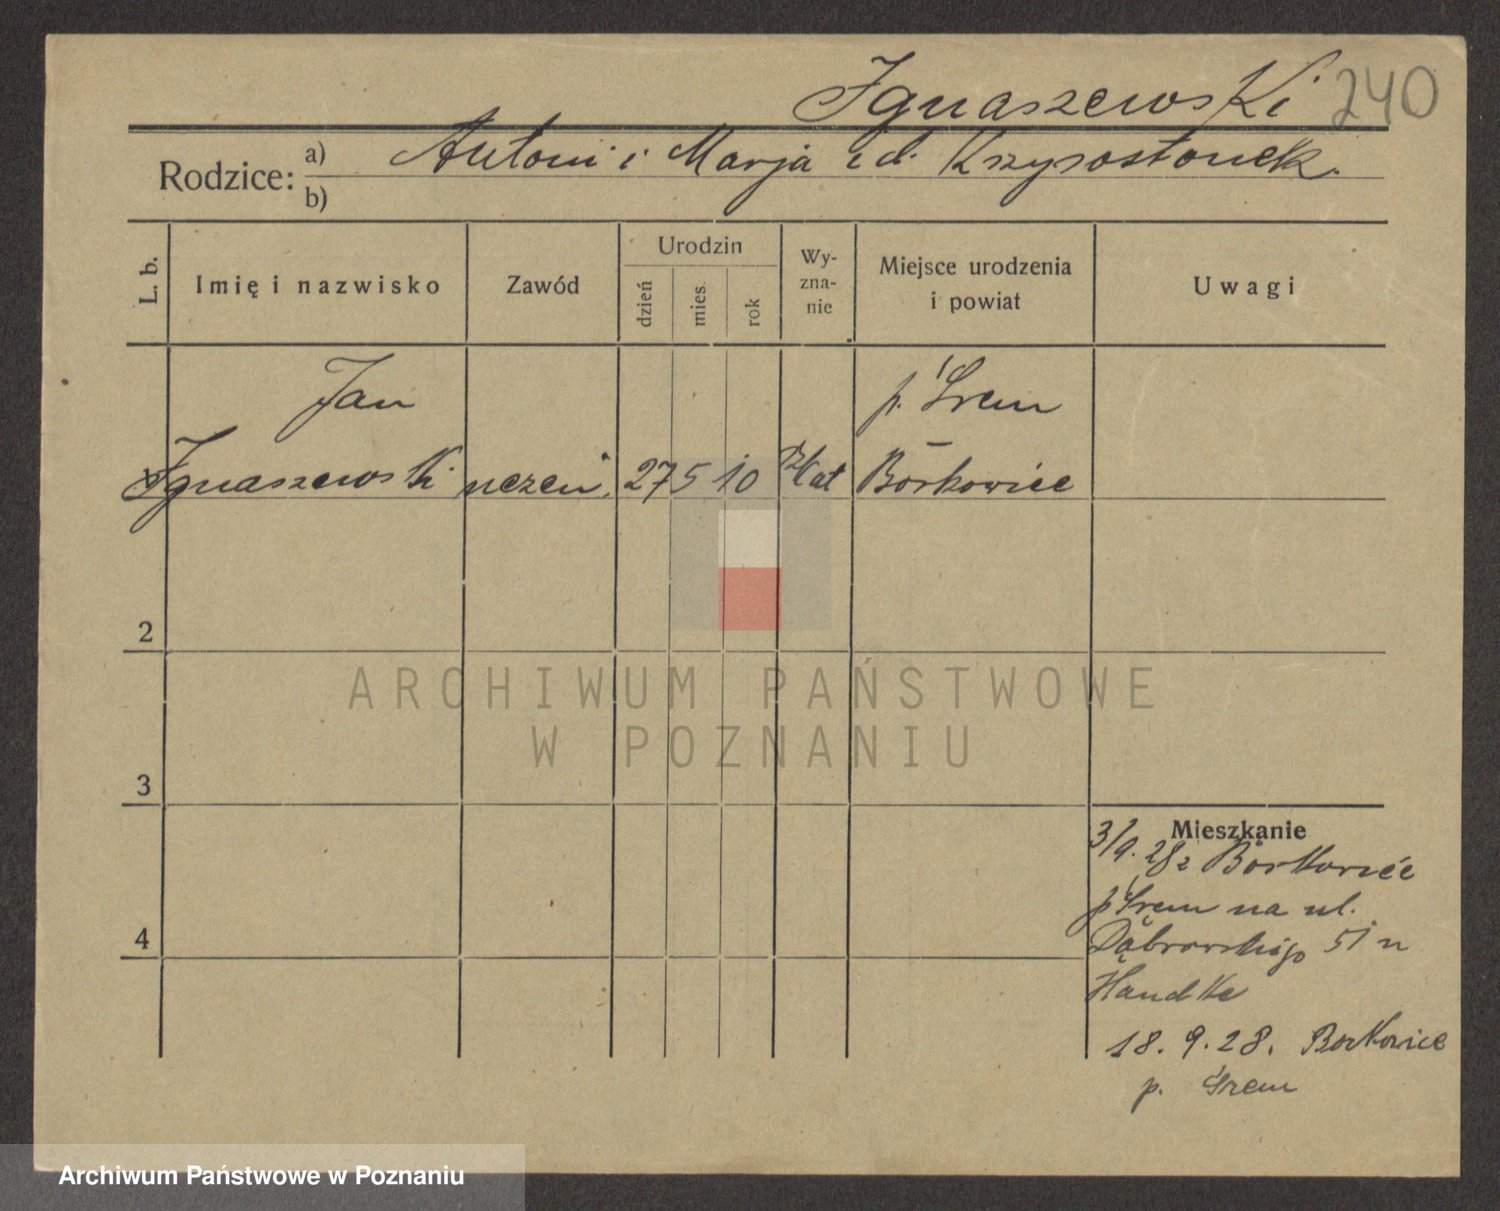 Ignaszewski 240
Rodzice: a) Antoni i Marja z d. Krzysostonek.
b)
L. b.
Imię i nazwisko
Zawód
Urodzin
dzień
mies.
rok
Wy-
zna-
nie
Miejsce urodzenia
i powiat
Uwagi
Jan
p. Śrem
Ignaszewski uczeń. 27 5 10 Rzkat Borkowice
2
ARCHIWUM PAŃSTWOWE
W POZNANIU
3
Mieszkanie
3/9. 28 z Borkowice
p Śrem na ul.
Dąbrowskiego 51 u
4
Handke
18. 9. 28. Borkowice
p. Śrem
Archiwum Państwowe w Poznaniu